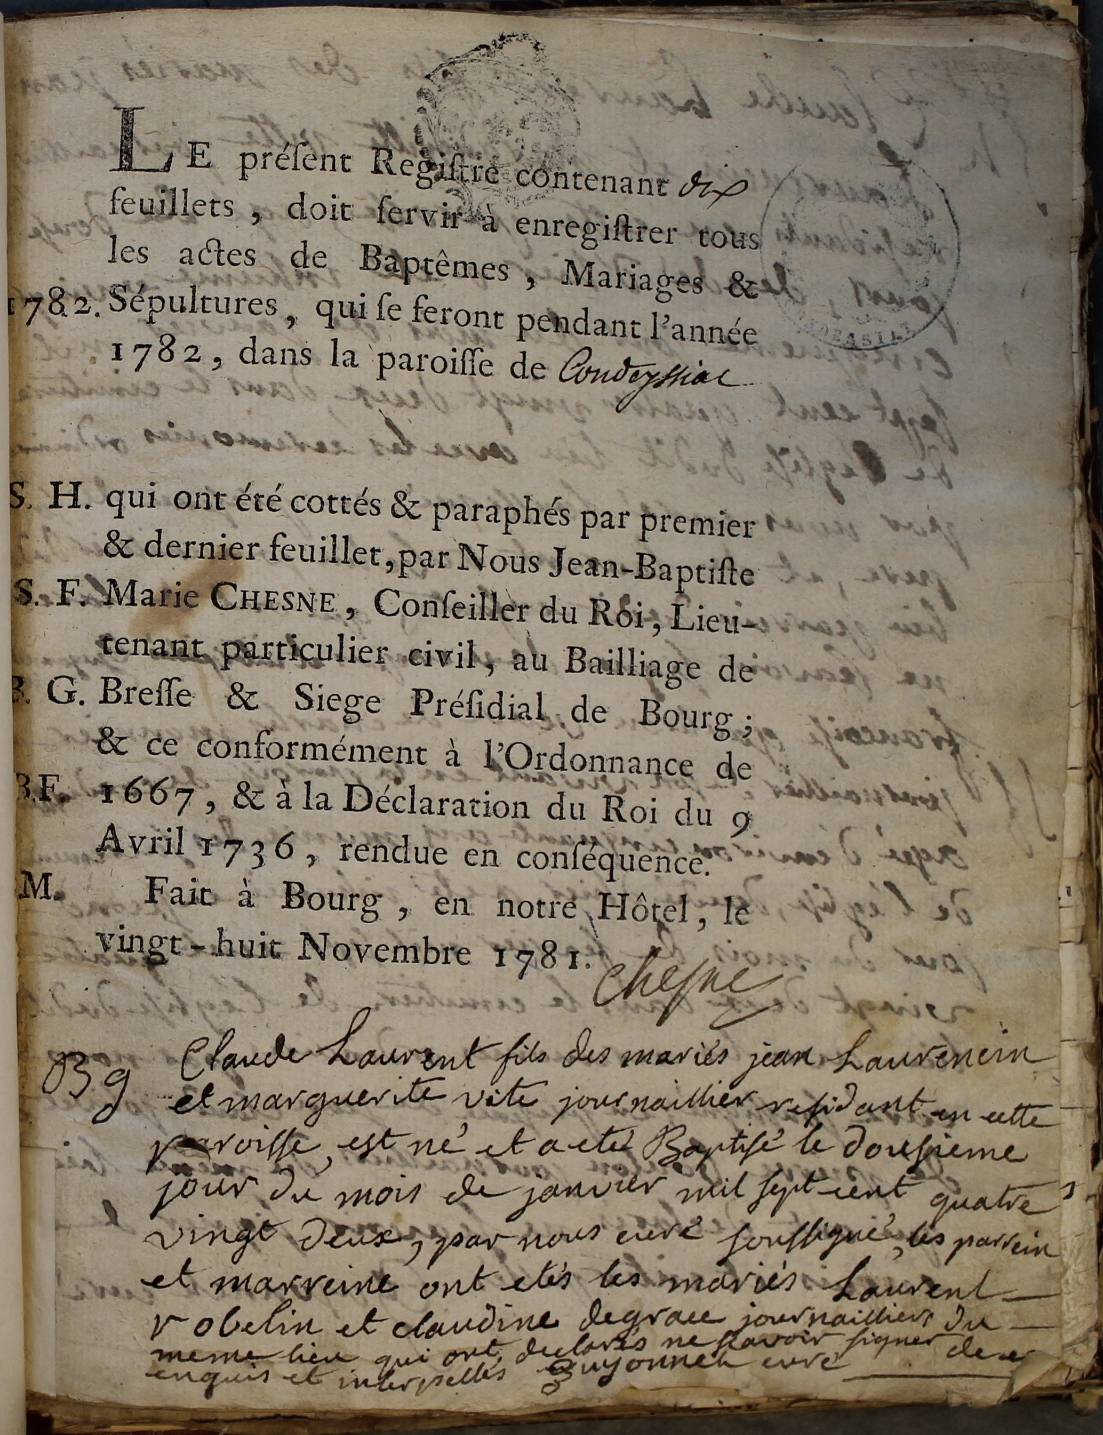 LE préſent Regiſtre contenant dix
feuillets, doit ſervir à enregiſtrer tous
les actes de Baptêmes, Mariages &
1782. Sépultures, qui ſe feront pendant l'année
1782, dans la paroiſſe de Condeyssiat
S. H. qui ont été cottés & paraphés par premier
& dernier feuillet, par Nous Jean-Baptiſte
S. F. Marie CHESNE, Conſeiller du Roi, Lieu-
tenant particulier civil, au Bailliage de
B. G. Breſſe & Siege Préſidial de Bourg;
& ce conformément à l'Ordonnance de
B.F. 1667, & à la Déclaration du Roi du 9
Avril 1736, rendue en conſéquence.
M. Fait à Bourg, en notre Hôtel, le
vingt-huit Novembre 1781.
Chesne
B g Claude Laurent fils des mariés jean Laurencin
et marguerite vite journaillier residant en cette
paroisse, est né et a eté Baptisé le dousieme
jour du mois de janvier mil sept cent quatre
vingt deux, par nous curé soussigné, les parrein
et marreine ont etés les mariés Laurent
robelin et claudine degrace journailliers du
meme lieu qui ont declarés ne savoir signer de ce
enquis et interpellés Guyonnet curé